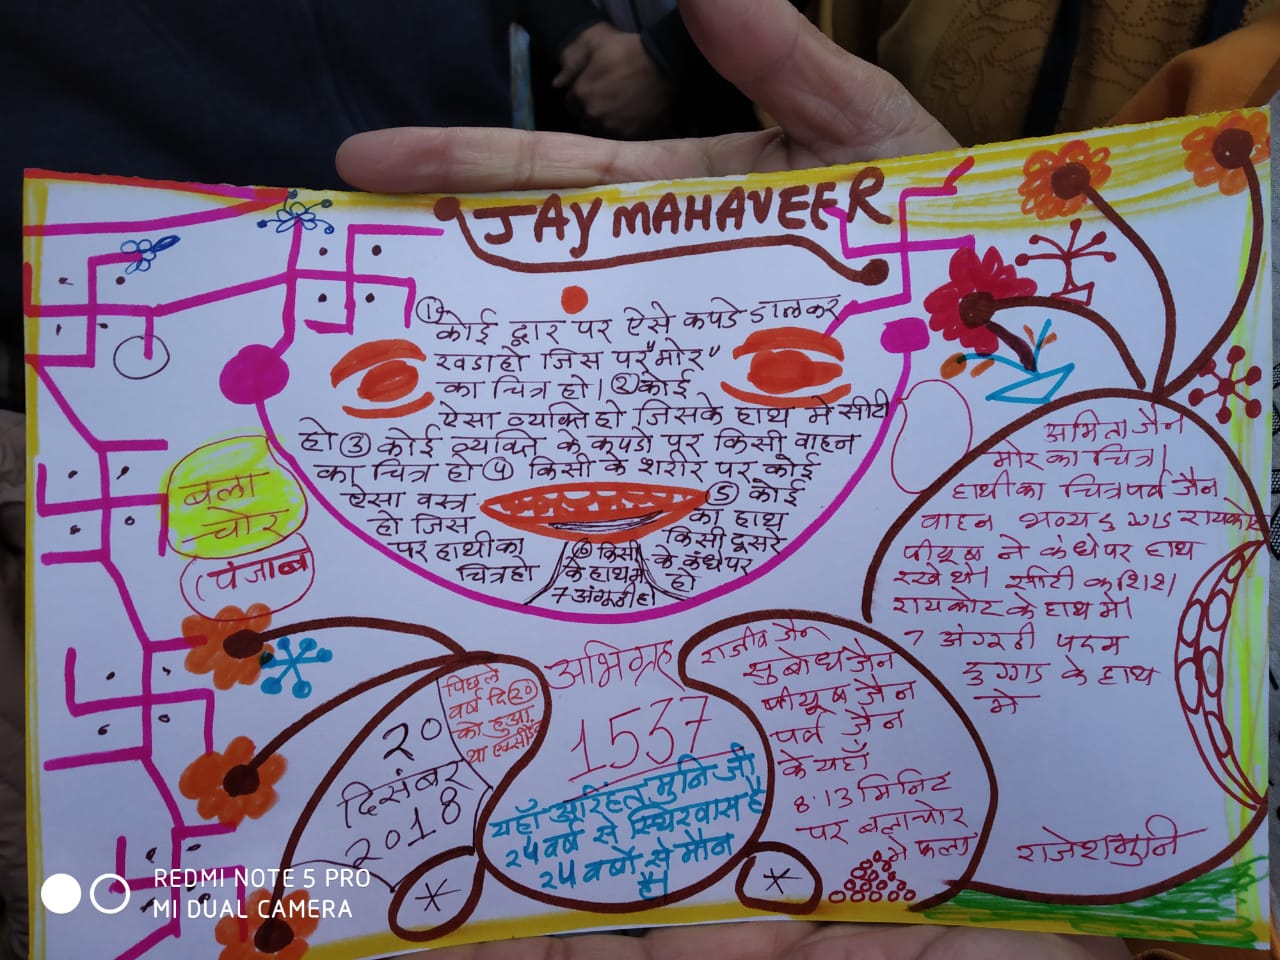 JAY MAHAVEER
① कोई द्वार पर ऐसे कपडे डालकर
खडा हो जिस पर "मोर"
का चित्र हो। ② कोई
ऐसा व्यक्ति हो जिसके हाथ मे सीटी
हो ③ कोई व्यक्ति के कपडो पर किसी वाहन
का चित्र हो ④ किसी के शरीर पर कोई
ऐसा वस्त्र
हो जिस
पर हाथी का
चित्र हो
⑤ कोई
का हाथ
किसी दूसरे
के कंधे पर
हो
⑥ किसी
के हाथ मे
7 अंगूठी हो
बला
चोर
(पंजाब)
अभिग्रह
1537
पिछले
वर्ष दि 20
को हुआ
था एक्सीडेंट
20
दिसंबर
2018
यहाँ अरिहंत मुनि जी
24 वर्ष से स्थिरवास है
24 वर्षो से मौन
है।
राजीव जैन
सुबोध जैन
पीयूष जैन
पर्व जैन
के यहाँ
8:13 मिनिट
पर बलाचोर
मे फला
अमिता जैन
मोर का चित्र।
हाथी का चित्र पर्व जैन
वाहन भव्य डुग्गड रायकोट
पीयूष ने कंधे पर हाथ
रखे थे। सीटी कशिश
रायकोट के हाथ मे।
7 अंगूठी पदम
डुग्गड के हाथ
मे
राजेशमुनि
REDMI NOTE 5 PRO
MI DUAL CAMERA